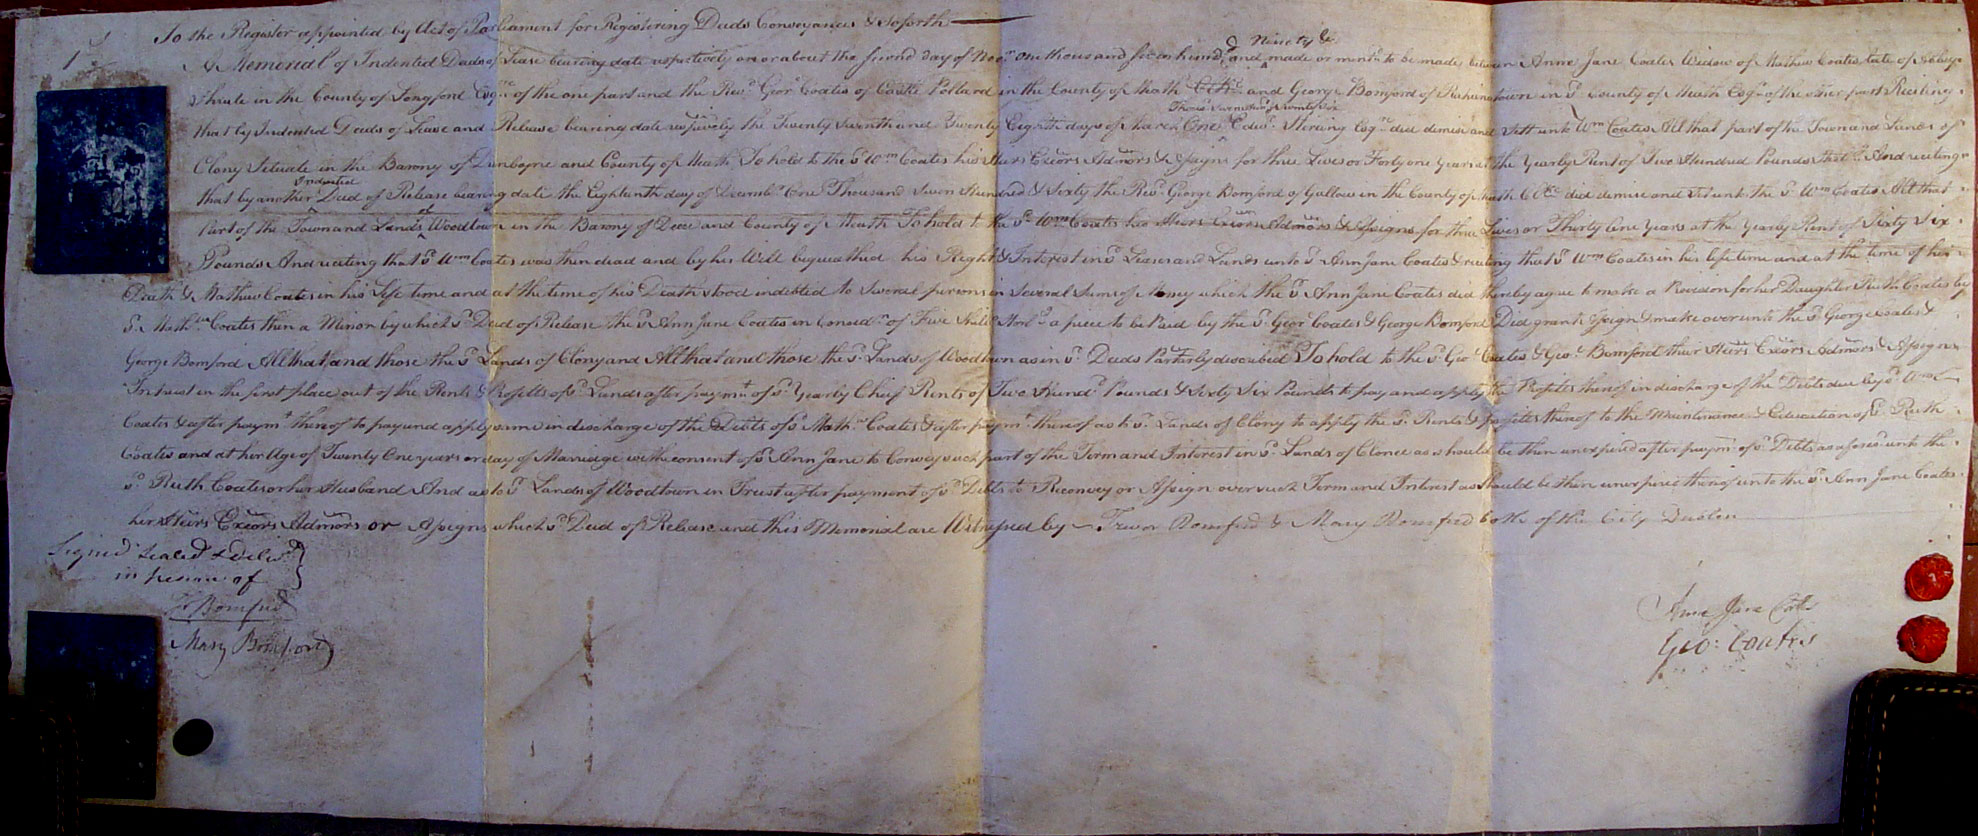 To the Register appointed by Act of Parliament for Registering Deeds Conveyances & Soforth
A Memorial of Indented Deeds of Lease bearing date respectively on or about the second day of One thousand and Ninety & made or ment.d to be made between Anne Jane Coates Widow of Mathew Coates late of
Shrule in the County of Longford Esq.re of the one part and the Rev.d Geor. Coates of Castle Pollard in the County of Meath and George Bomford of Rahinstown in s.d County of Meath Esq.r of the other part Reciting
that by Indented Deeds of Lease and Release bearing date respively the Twenty Seventh and Twenty Eighth days of March One Thous.d Seven Hund.d & Edw.d Sterling Esq.r did demise and Sett unto W.m Coates All that part of the Town and Lands of
Clony Situate in the Barony of Dunboyne and County of Meath To hold to the s.d W.m Coates his Heirs Execors Admors & Assigns for three Lives or Forty one Years at the Yearly Rent of Two Hundred Pounds And reciting
that by another Indented Deed of Release bearing date the Eighteenth day of Decemb.r One Thousand Seven Hundred & Sixty the Rev.d George Bomford of Gallow in the County of Meath did demise and Set unto the s.d W.m Coates All that
Part of the Town and Lands of Woodtown in the Barony of Deece and County of Meath To hold to the s.d W.m Coates his Heirs Execors Admors & Assigns for three Lives or Thirty One Years at the Yearly Rent of Sixty Six
Pounds And reciting that s.d W.m Coates was then dead and by his Will bequeathed his Right & Interest in s.d Leases and Lands unto s.d Ann Jane Coates & reciting that s.d W.m Coates in his life time and at the time of his
Death & Mathew Coates in his Life time and at the time of his Death stood indebted to Several persons in Several Sums of Money which the s.d Ann Jane Coates did thereby agree to make a Provision for her Daughter Ruth Coates by
s.d Math.w Coates then a Minor by which s.d Deed of Release the s.d Ann Jane Coates in Consid.n of Five Shill.s Sterl.g a piece to be Paid by the s.d Geor. Coates & George Bomford Did grant Assign & make over unto the s.d George Coates &
George Bomford All that and those the s.d Lands of Clony and All that and those the s.d Lands of Woodtown as in s.d Deeds Partic'ly described To hold to the s.d Geo. Coates & Geo. Bomford their Heirs Execors Admors & Assigns
In trust in the first place out of the Rents & Profitts of s.d Lands after paym.t of s.d Yearly Chief Rents of Two Hund.d Pounds & Sixty Six Pounds to pay and apply the Profites thereof in discharge of the Debts due by s.d W.m
Coates & after paym.t thereof to pay and apply same in discharge of the Debts of s.d Math.w Coates & after paym.t thereof as to s.d Lands of Clony to apply the s.d Rents & profites thereof to the Maintenance & Education of s.d Ruth
Coates and at her Age of Twenty One years or day of Marriage with consent of s.d Ann Jane to Convey such part of the Term and Interest in s.d Lands of Clonee as should be then unexpired after paym.t of s.d Debts as afores.d unto the
s.d Ruth Coates or her Husband And as to s.d Lands of Woodtown in Trust after payment of s.d Debts to Reconvey or Assign over such Term and Interest as should be then unexpired thereof unto the s.d Ann Jane Coates
her Heirs Execors Admors or Assigns which s.d Deed of Release and this Memorial are Witnessed by Trevor Bomford & Mary Bomford both of the City Dublin
Signed Sealed & Deliv.d
in presence of
T. Bomford
Mary Bomford
Anne Jane Coates
Geo: Coates